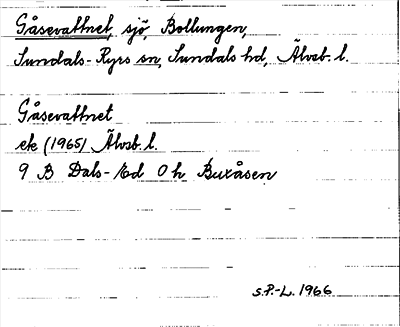 Gåsevattnet, sjö, Bollungen,
Sundals-Ryrs sn, Sundals hd, Älvsb. l.
Gåsevattnet
ek (1965) Älvsb. l.
9 B Dals-Ed 0 h Buxåsen
S.P.-L. 1966